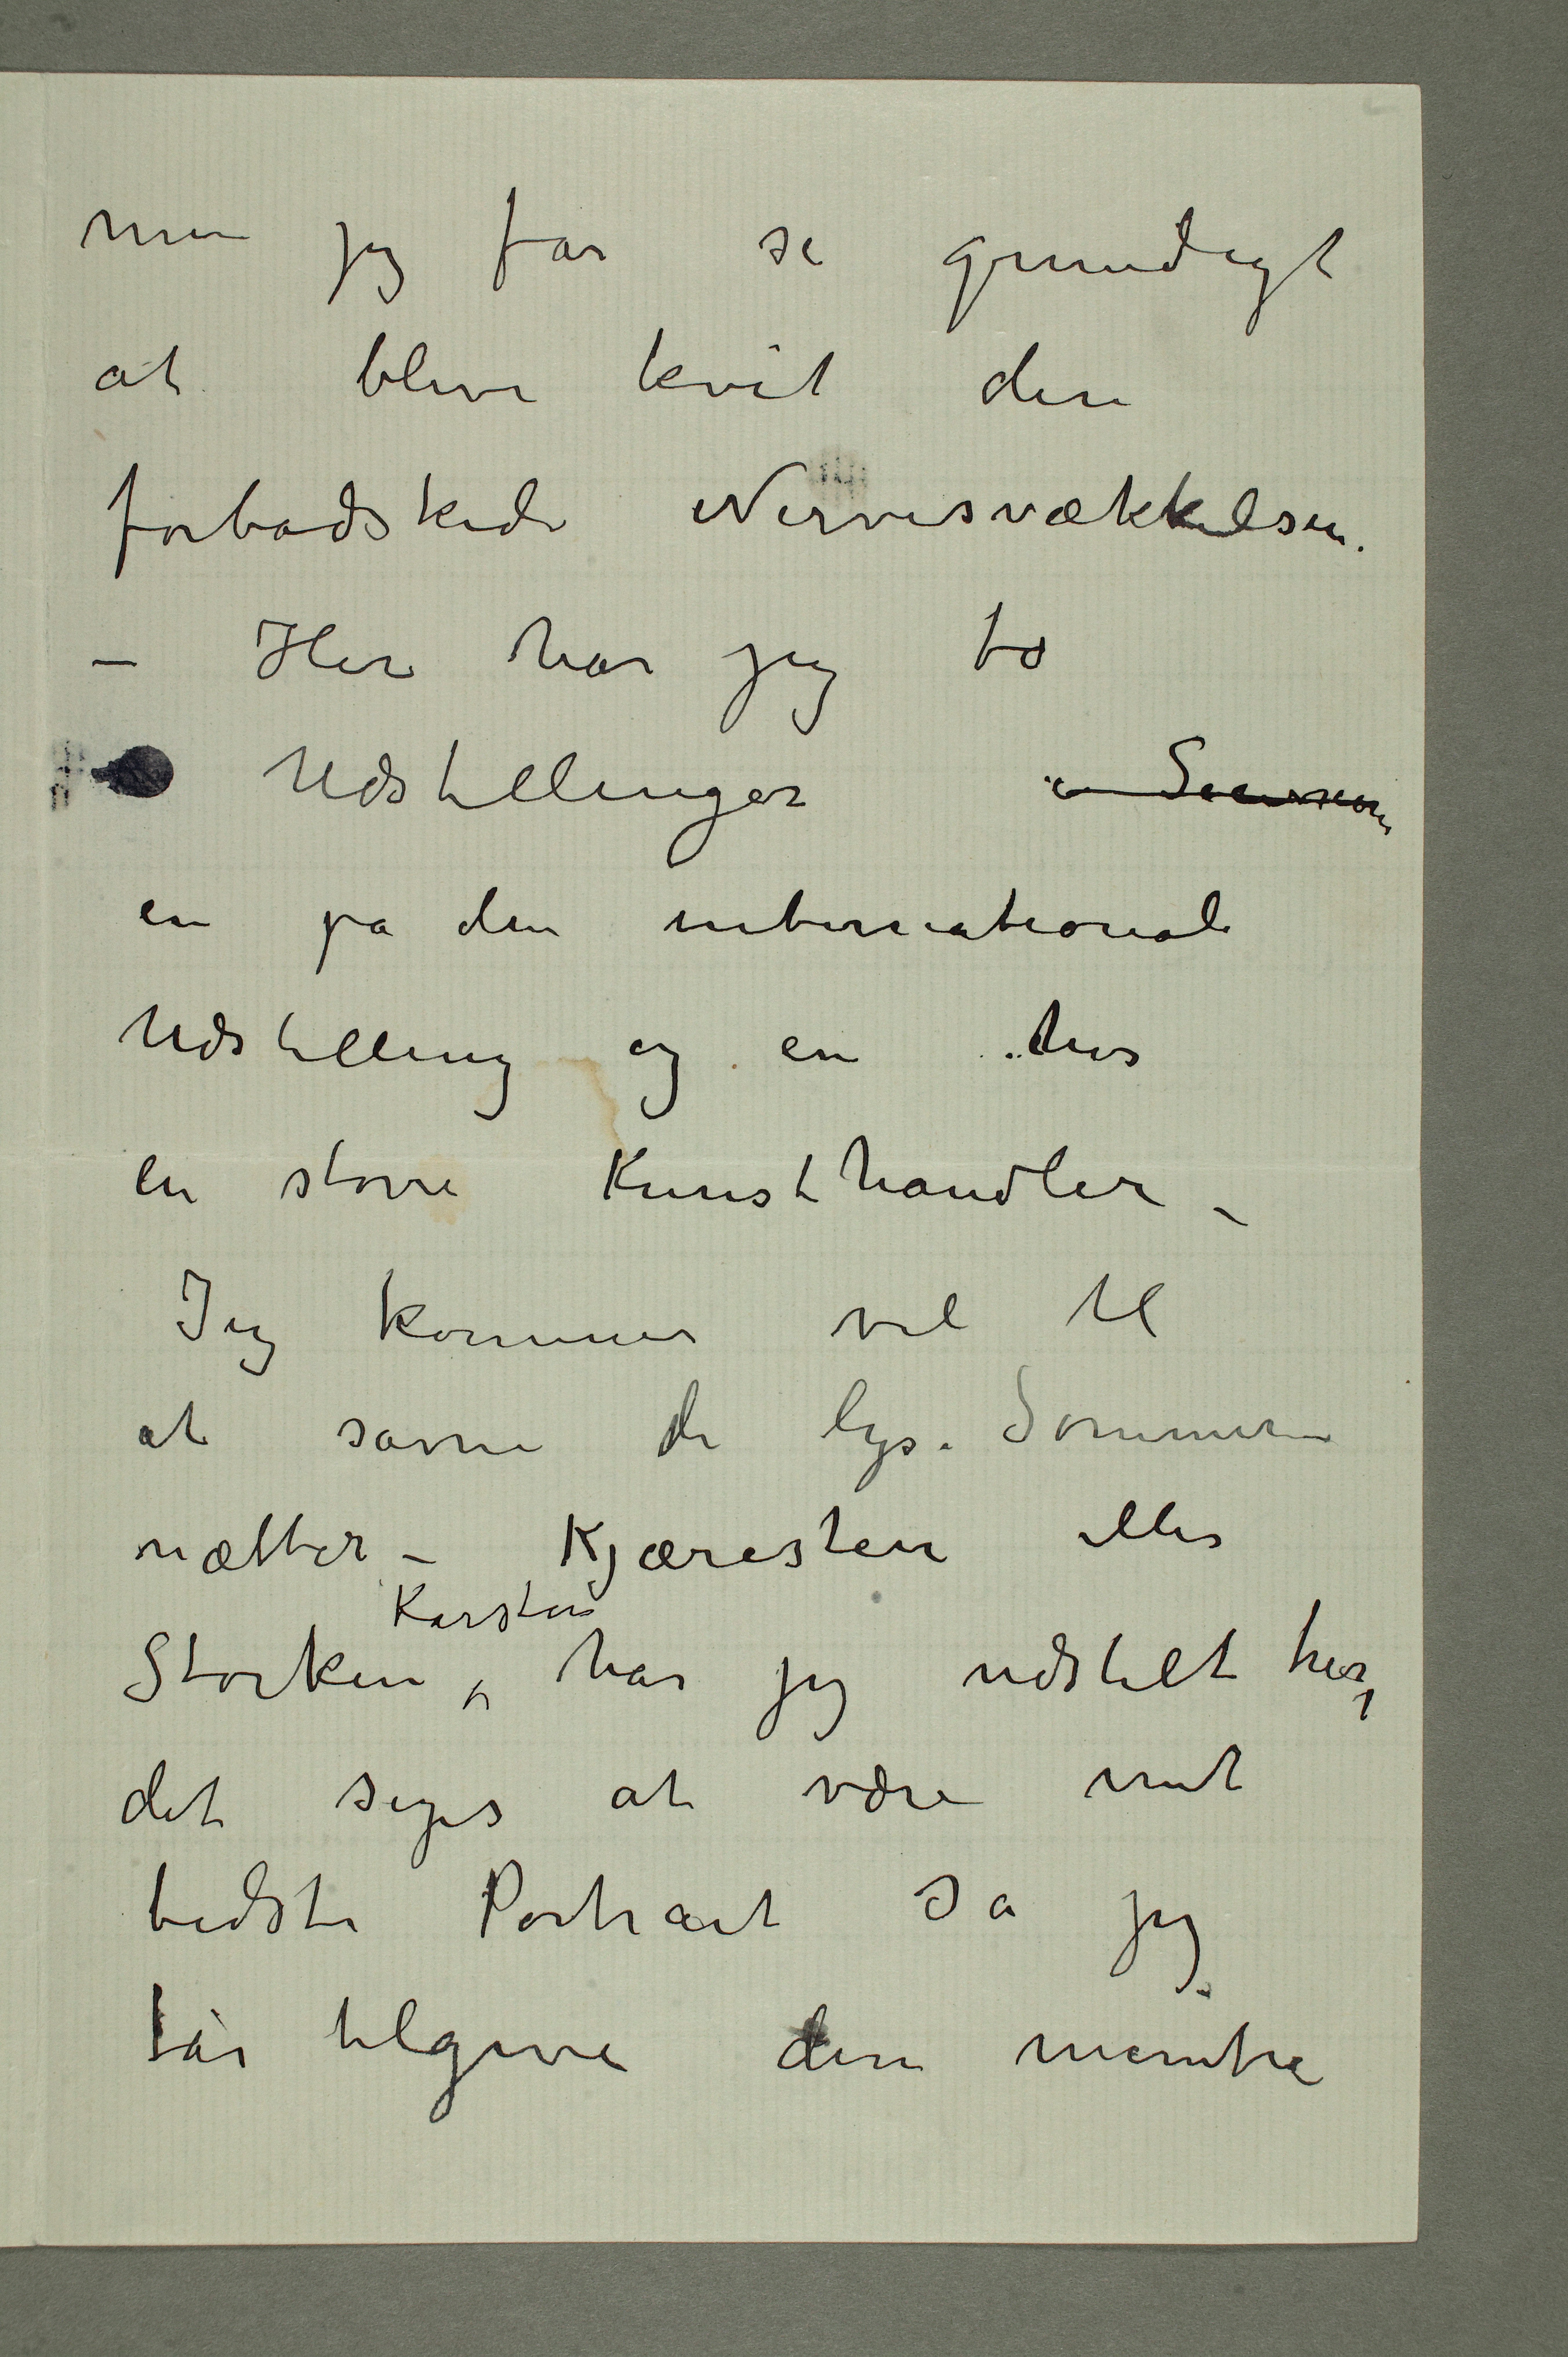 men jeg får se grundigt
at blive kvit den
forbadskede Nervesvækkelsen.
– Her har jeg to
Udstillinger
en på den internationale
Udstilling og en hos
en større Kunsthandler –
Jeg kommer vel til
at savne de lyse Sommer
nætter – Kjæresten eller
Karsten
Storken, har jeg udstilt her,
det siges at være mit
bedste Portræt så jeg
får tilgive den mentre